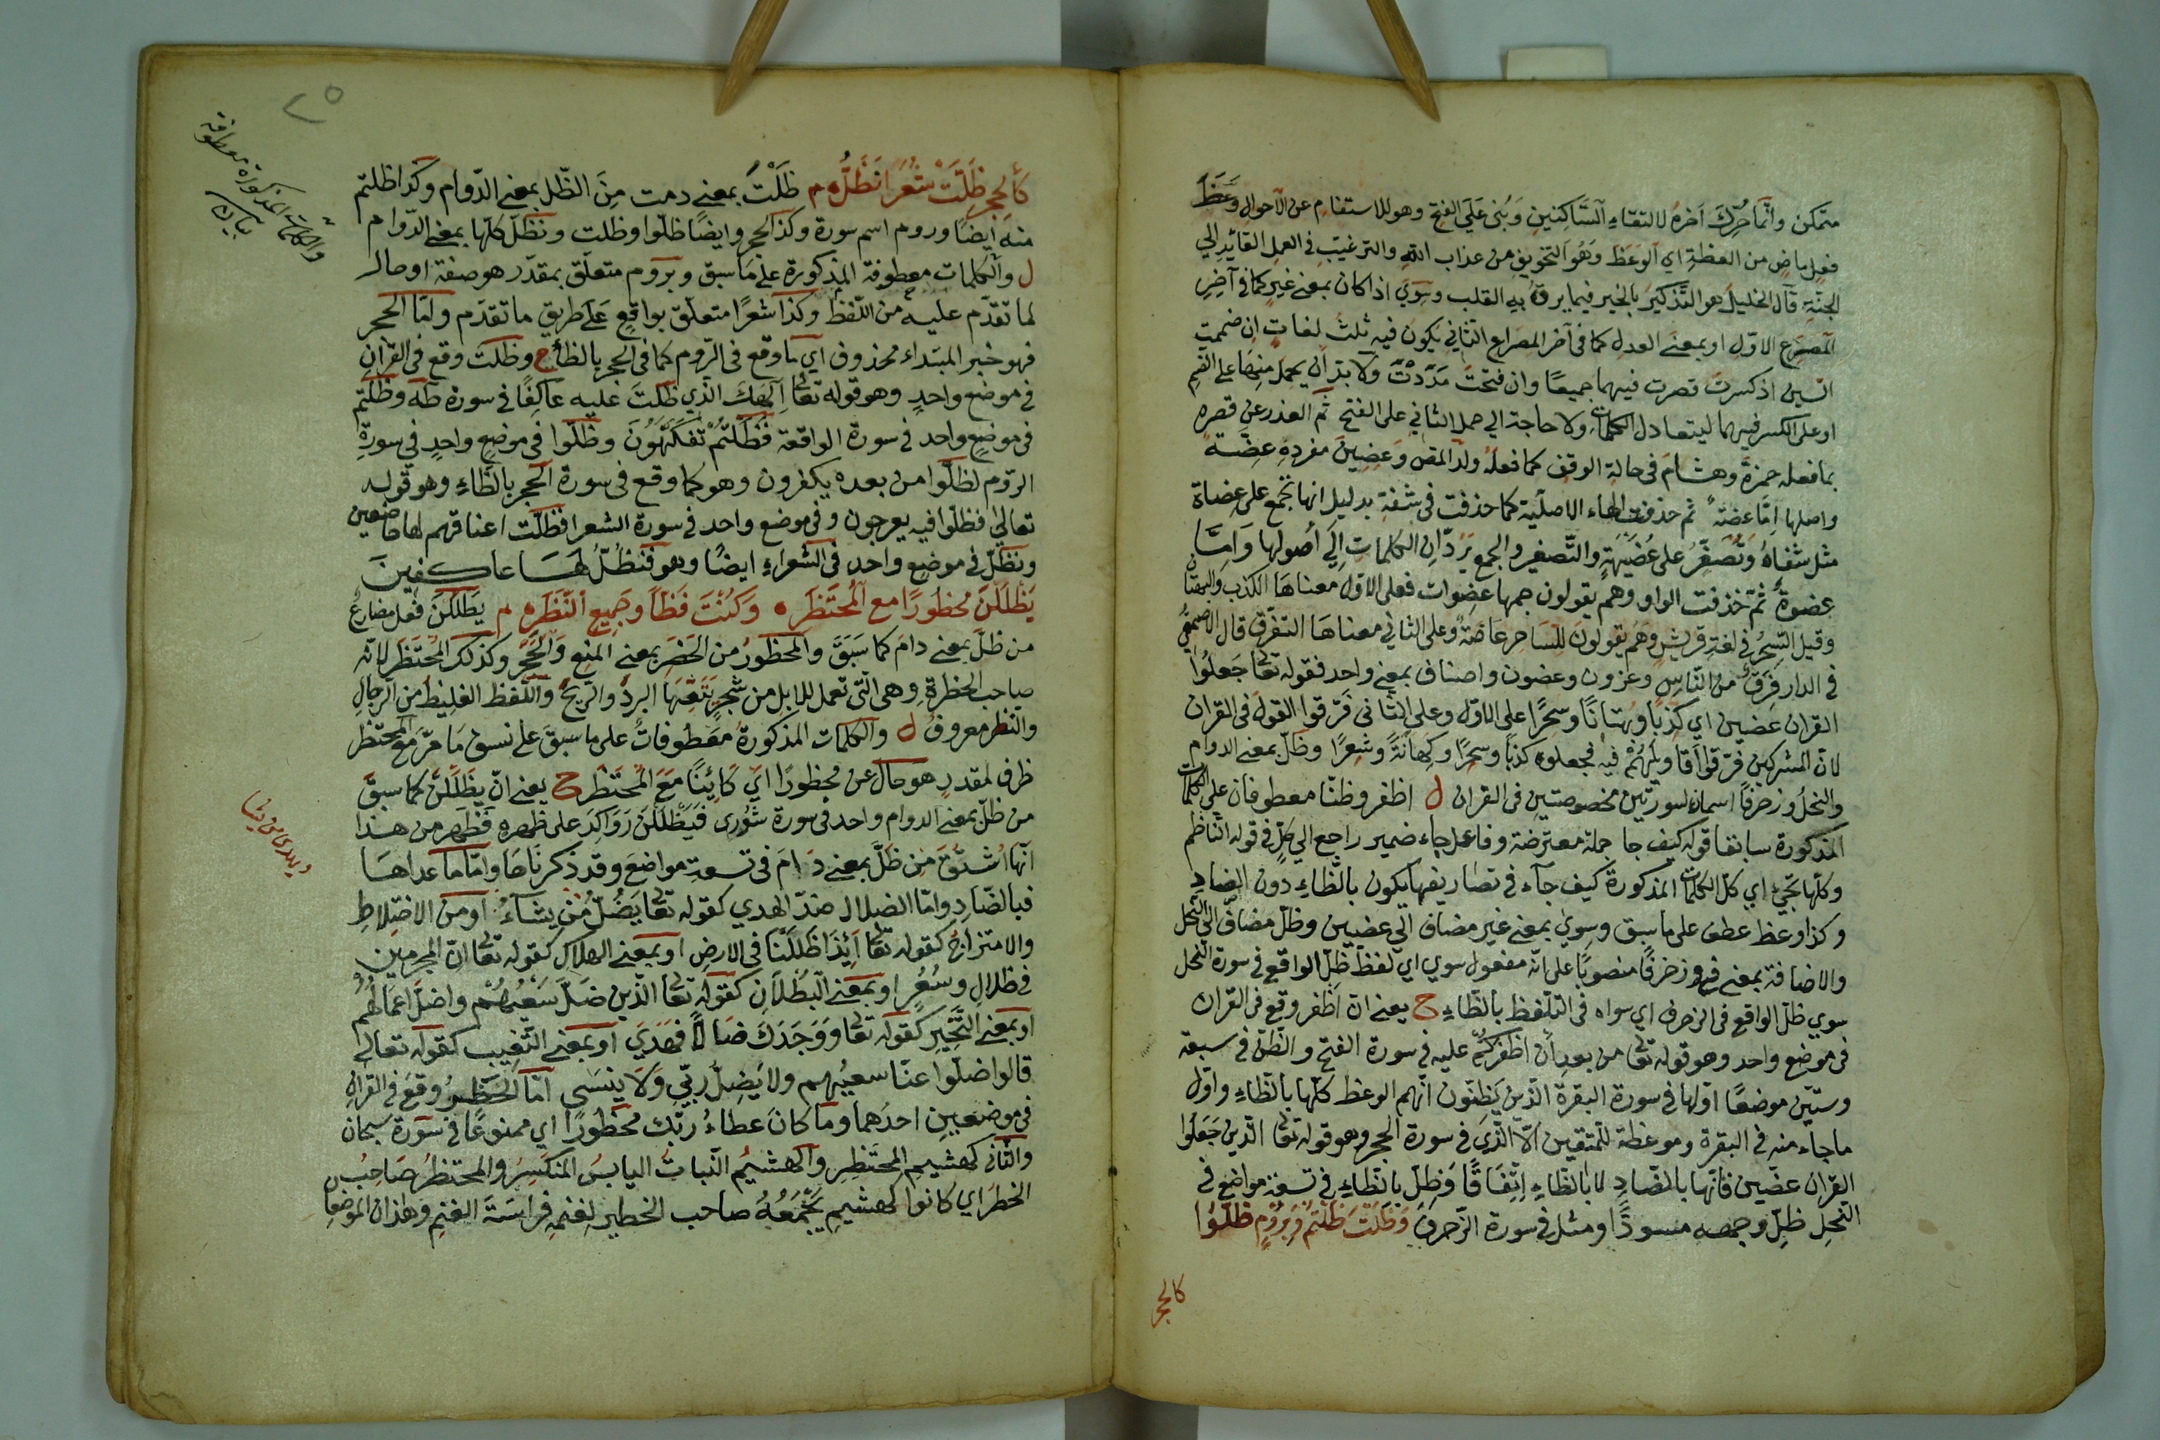 متمكن وانّما حُرّكَ آخرهُ لالتقاءِ السّاكنينِ وَبُنى عَلَى الفتحِ وهو للاستفهام عن الاحوالِ وَعَظَ
فعل ماضٍ من العظةِ اي الوعظ وَهُوَ التخويف من عذاب الله والترغيب فى العمل القائد الي
الجنّةِ قال الخليل هو التّذكير بالخير فيما يرقّ بهِ القلب وسِوَي اذا كان بمعنى غيرٍ كما فى آخِرِ
المصرع الاوّل او بمعنى العدل كما فى آخر المصراع الثّانى يكون فيه ثلث لغاتٍ ان ضممت
السّين او كسرت قصرت فيهما جميعًا وان فتحتَ مَدَدْتَ ولا بدّ ان يحمل منهما على الضّم
او على الكسر فيهما ليتعادل الكلمات ولا حاجة الي حمل الثاني على الفتح ثم العذر عن قصره
بما فعله حمزة وهشام فى حالة الوقف كما فعلهُ ولد المص وَعِضِينَ مفرده عِضَة
واصلها امّا عضهةٌ ثم حذفت الهاء الاصلية كما حذفت فى شفةٍ بدليل انها تجمع على عضاة
مثل شفاهٌ وَتُصَغَّرُ على عُضَيْهَةٍ والتّصغير والجمع يَرُدّانِ الكلماتِ اِلَى اُصولها وَامّا
عضوةٌ ثمّ حذفت الواو وهم يقولون جمعها عضوات فعلى الاوّل معناها الكذب والبهتان
وقيل السِّحْرُ فى لغةِ قريشٍ وَهُم يقولونَ للسّاحر عَاضهٌ وعلى الثانى معناها التفرّق قال الاصمعيّ
فى الدار فِرَقٌ من النّاسِ وعزون وعضون واصناف بمعنى واحد فقوله تعا جَعَلُوا
القران عضين اي كذِبًا وبُهتانًا وسِحرًا على الاوّل وعلى الثّانى فَرّقوا القول فى القران
لانّ المشركين فرّقوا اقاويلَهُمْ فيه فجعلوه كذبًا وسِحرًا وكِهانَةً وشِعرًا وظلّ بمعنى الدوام
والنحلُ وزخرفًا اسمان لسورتين مخصوصتين فى القران ل اظفر وظنّا معطوفان على الكلمات
المذكورة سابقا قوله كيف جا جملة معترضة وفاعل جاء ضمير راجع الي كلّ فى قوله النّاظم
وكلّها تجئ اي كلّ الكلمات المذكورة كيف جآء فى تصاريفها يكون بالظّاءِ دون الضادِ
وكذا وعظ عطف على ما سبق وسِوي بمعنى غير مضاف الي عضين وظلّ مضاف الي النحل
والاضافة بمعنى فى و زخرفًا منصوبًا على انّه مفعول سوي اي لفظ ظلّ الواقع فى سورة النحل
سوي ظلّ الواقع فى الزخرف اي سواه فى التّلفّظ بالظّاءِ ح يعنى انّ اظفر وقع فى القران
فى موضع واحد وهو قوله تعا من بعد ان اظفركم عليه فى سورة الفتح والظنّ فى سبعة
وستّين موضعًا اوّلها فى سورة البقرة الّذين يَظنّون انّهم الوعظ كلّها بالظّاءِ واوّل
ما جاء منه فى البقرة وموعظة للمتقين الّا الّذى فى سورة الحجر وهو قوله تعا الّذين جَعَلُوا
القران عضّين فانّها بالضّادِ لا بالظّاءِ اِتّفَاقًا وَظلّ بالظّاءِ فى تسعة مواضع فى
النحل ظلّ وجهه مسودًّا ومثل فى سورة الزّخرف وَظَلْتَ ظَلْتُمُ وَبِرُومٍ ظَلّوُا
كالحجر
كَالْحِجْرِ ظَلَّتْ شُعَرًا نَظَلُّ م ظَلْتَ بمعنى دمت مِنَ الظّل بمعنى الدّوام وكذا ظلتم
منه ايضًا وروم اسم سورة وكذ الحجر وايضًا ظلّوا وظلت ونظلّ كلّها بمعنى الدّوام
ل والكلمات معطوفة المذكورة على ما سبق وبروم متعلّق بمقدّر هو صفة او حال
لما تقدّم عليه من اللّفظ وكذا شعرًا متعلّق بواقعٍ عَلَى طريقِ ما تقدّم وامّا الحجر
فهو خبر المبتداء محذوف اي ما وقع فى الرّوم كما فى الحجر بالظاء ح وظَلْتَ وقع فى القرآن
فى موضع واحدٍ وهو قوله تعا اِلٰهِكَ الّذي ظَلْتَ عليه عاكِفًا فى سورة طه وظَلْتُم
فى موضعٍ واحد فى سورة الواقعة فَظَلْتُمْ تَفَكَّهُونَ وظلّوا فى موضعٍ واحدٍ فى سورةِ
الرّوم لظلّوا من بعده يكفرون وهو كما وقع فى سورة الحجر بالظّاءِ وهو قوله
تعالى فظلّوا فيه يعرجون وفى موضع واحد فى سورة الشعرا فظلّت اعناقهم لها خاضعين
ونظلّ فى موضعٍ واحدٍ فى الشّعراءِ ايضًا وهو فنظلّ لها عاكفين
يَظْلَلْنَ مَحْظورًا مع الْمُحْتَظَرِ وَكُنْتَ فَظّا وجَمِيعِ النّظَرِ م يظللن فعل مضارع
من ظلّ بمعنى دامَ كما سَبَقَ والمحظورُ من الحَضَر بمعنى المنع وَالحَجْرِ وكذلك المُحْتَظَر لانّه
صاحب الحظرةِ وهى الّتى تعمل للابل من شجرٍ يَتَقِيهَا البردُ والريحُ والفظّ الغليظ من الرّجالِ
والنّظر معروف ل والكلمات المذكورةُ مَعْطُوفاتٌ على ما سبقَ على نسق مَا مرّ مَعَ المحتظر
ظرف لمقدرٍ هو حال عن محظورًا اي كَائِنًا مَعَ المُحتظر ح يعنى انّ يظْلَلْنَ كما سبقَ
من ظلّ بمعنى الدوام واحد فى سورة شُورى فَيَظْلَلْنَ رَوَاكِدَ على ظهرهِ فظَهر من هذا
انّها اشتقّ من ظَلَّ بمعنى دَامَ فى تسعةِ مواضعَ وقد ذكرناها وامّا ما عداها
فبالضّادِ وامّا الضلال ضدّ الهدي كقوله تعا يَضُلّ مَن يشآءُ او من الاختلاطِ
والامتزاج كقوله تعا اَئِذَا ظَلَلْنَا فى الارض او بمعنى الهلاك كقوله تعا انّ المجرمين
فى ظلالٍ وسُعُرٍ او بمعنى البُطْلَانِ كقوله تعا الّذين ضَلَّ سَعْيُهُمْ واضلّ اعمالهُم
او بمعنى التّحَيّر كقوله تعا وَوَجَدَكَ ضَالًّا فهَدَي او بمعنى التّغيب كقوله تعالى
قالوا ضلّوا عنّا سعيُهم ولا يَضِلُّ ربّي وَلَا ينسَى امّا الحظر وقع فى القرانِ
فى موضعين احدهما وما كان عطاءُ ربّك محظورًا اي ممنوعًا فى سورة سبحان
والثّانى كهشيم المحتَظِرِ والهشيمُ النّباتُ اليابسُ المنكسِرُ والمحتظرُ صَاحِبُ
الحظر اي كانوا كهشيمٍ يَجْمَعُهُ صاحب الحظير لِغنَمِهِ فراسَة الغنمِ وهذان الموضعان
والكلمات المذكورة معطوفة